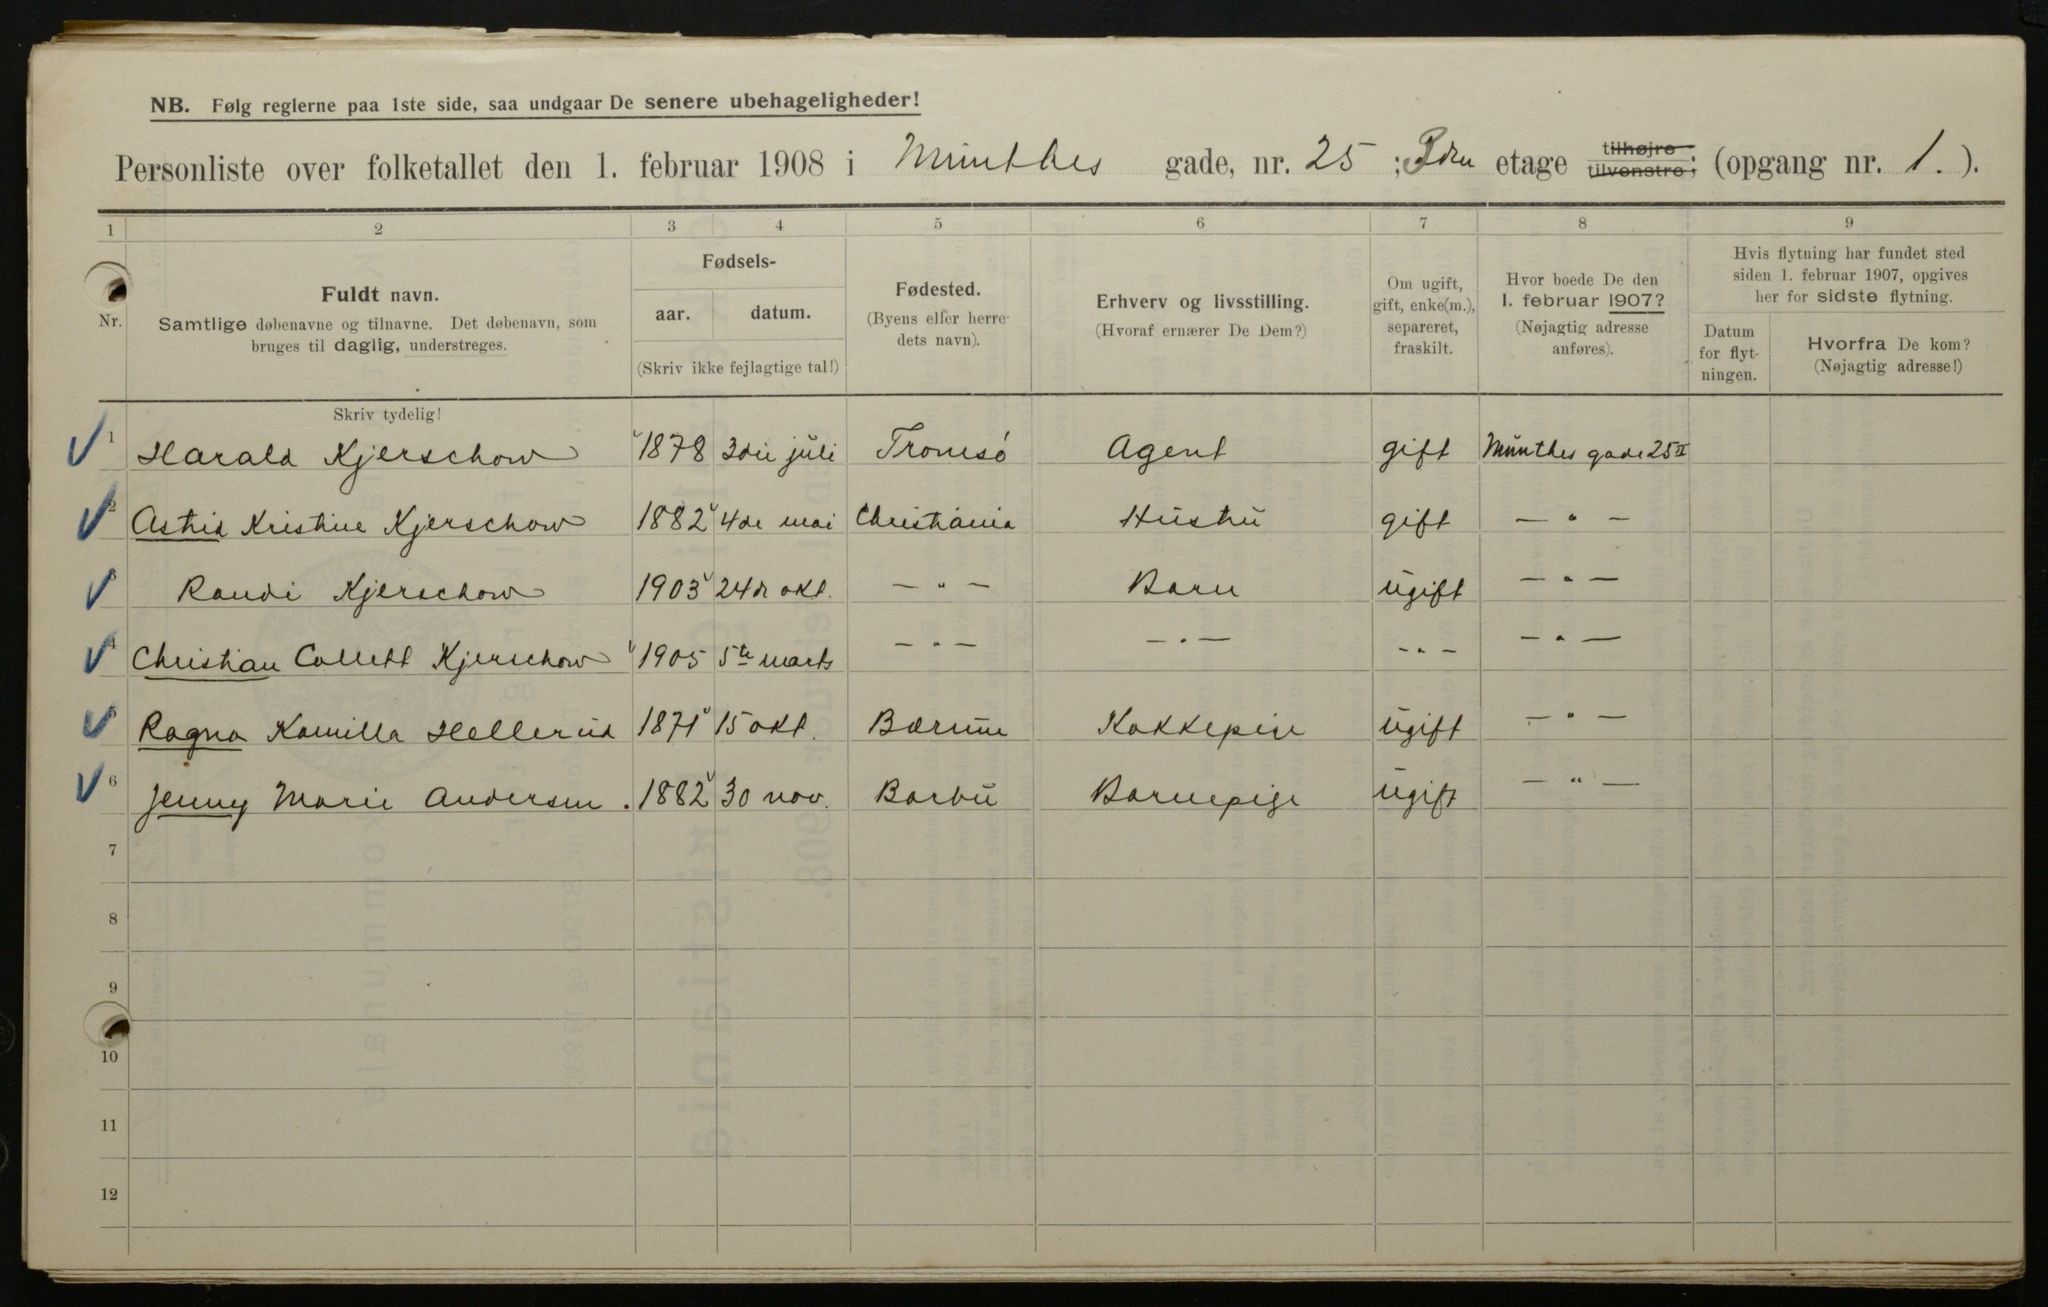 NB. Følg reglerne paa 1ste side, saa undgaar De senere ubehageligheder!
Personliste over folketallet den 1. februar 1908 i Münthes gade, nr. 25 ; etage tilhøjre tilvenstre; (opgang nr. 1. ).
1 2 3 4 5 6 7 8 9
Nr.
Fuldt navn.
Samtlige døbenavne og tilnavne. Det døbenavn, som
bruges til daglig, understreges.
Skriv tydelig!
Fødsels-
aar. datum.
(Skriv ikke fejlagtige tal!)
Fødested.
(Byens eller herre-
dets navn).
Erhverv og livsstilling.
(Hvoraf ernærer De Dem?)
Om ugift,
gift, enke(m.),
separeret,
fraskilt.
Hvor boede De den
1. februar 1907?
(Nøjagtig adresse
anføres).
Hvis flytning har fundet sted
siden 1. februar 1907, opgives
her for sidste flytning.
Datum
for flyt-
ningen.
Hvorfra De kom?
(Nøjagtig adresse!)
1 Harald Kjerschow 1878 3die juli Tromsó Agent gift Münthes gade 25 II
2 Astrid Kristine Kjerschow 1882 4de mai Christiania Hüstrü gift — " —
3 Randi Kjerschow 1903 24d okt. — " — Barn ügift — " —
4 Christian Collett Kjerschow 1905 5te marts — " — — " — — " — — " —
5 Ragna Kamilla Hellerüd 1871 15 okt. Bærüm Kokkepige ügift — " —
6 Jenny Marie Andersen. 1882 30 nov. Barbü Barnepige ügift — " —
7
8
9
10
11
12